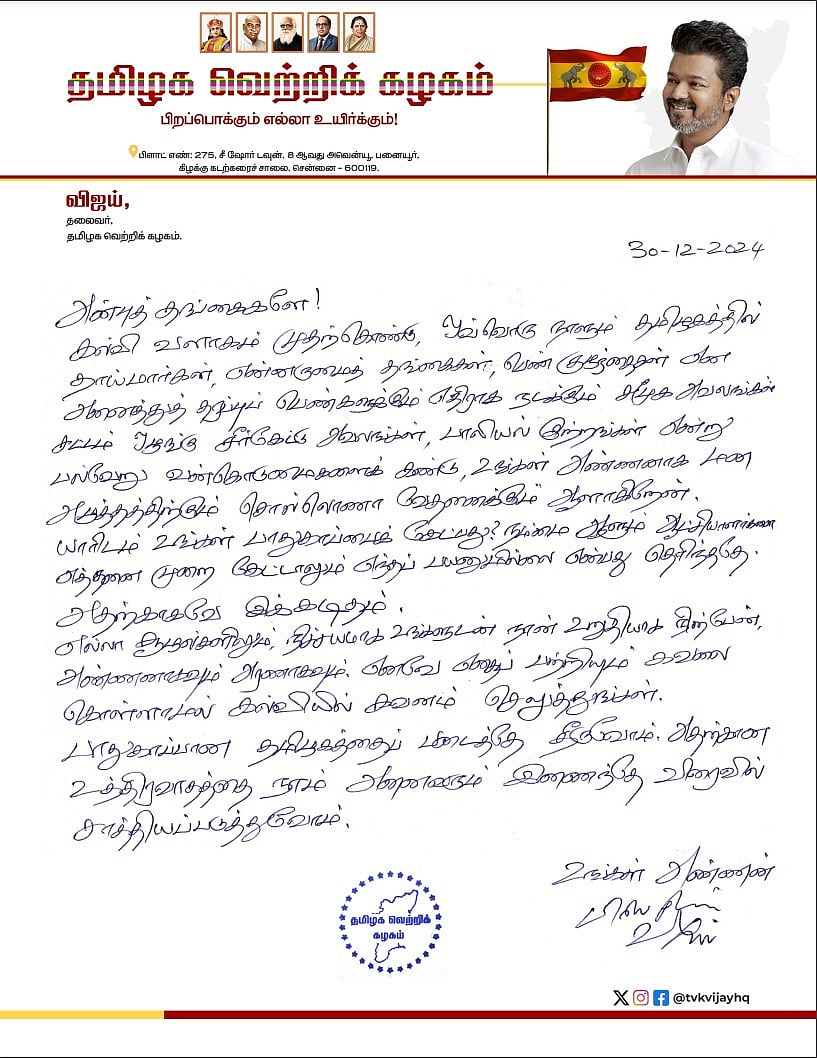 தமிழக வெற்றிக் கழகம்
பிறப்பொக்கும் எல்லா உயிர்க்கும்!
பிளாட் எண்: 275, சீ ஷோர் டவுன், 8 ஆவது அவென்யூ, பனையூர்,
கிழக்கு கடற்கரைச் சாலை, சென்னை - 600119.
விஜய்,
தலைவர்,
தமிழக வெற்றிக் கழகம்.
30-12-2024
அன்புத் தங்கைகளே!
கல்வி வளாகம் முதற்கொண்டு, ஒவ்வொரு நாளும் தமிழகத்தில்
தாய்மார்கள், என்னருமைத் தங்கைகள், பெண் குழந்தைகள் என
அனைத்துத் தரப்புப் பெண்களுக்கும் எதிராக நடக்கும் சமூக அவலங்கள்
சட்டம் ஒழுங்கு சீர்கேட்டு அவலங்கள், பாலியல் குற்றங்கள் என்று
பல்வேறு வன்கொடுமைகளைக் கண்டு, உங்கள் அண்ணனாக மன
அழுத்தத்திற்கும் சொல்லொணா வேதனைக்கும் ஆளாகிறேன்.
யாரிடம் உங்கள் பாதுகாப்பைக் கேட்பது? நம்மை ஆளும் ஆட்சியாளர்களை
எத்தனை முறை கேட்டாலும் எந்தப் பயனுமில்லை என்பது தெரிந்ததே.
அதற்காகவே இக்கடிதம்.
எல்லா சூழல்களிலும், நிச்சயமாக உங்களுடன் நான் உறுதியாக நிற்பேன்,
அண்ணனாகவும் அரணாகவும். எனவே எதைப் பற்றியும் கவலை
கொள்ளாமல் கல்வியில் கவனம் செலுத்துங்கள்.
பாதுகாப்பான தமிழகத்தைப் படைத்தே தீருவோம். அதற்கான
உத்திரவாதத்தை நாம் அனைவரும் இணைந்தே விரைவில்
சாத்தியப்படுத்துவோம்.
உங்கள் அண்ணன்
தமிழக வெற்றிக்
கழகம்
@tvkvijayhq